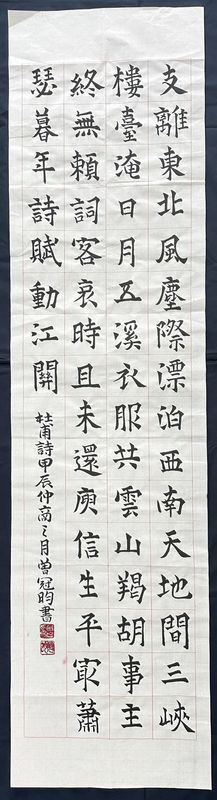 支離東北風塵際漂泊西南天地間三峽
樓臺淹日月五溪衣服共雲山羯胡事主
終無賴詞客哀時且未還庾信生平冣蕭
瑟暮年詩賦動江關
杜甫詩甲辰仲商之月曾冠昀書